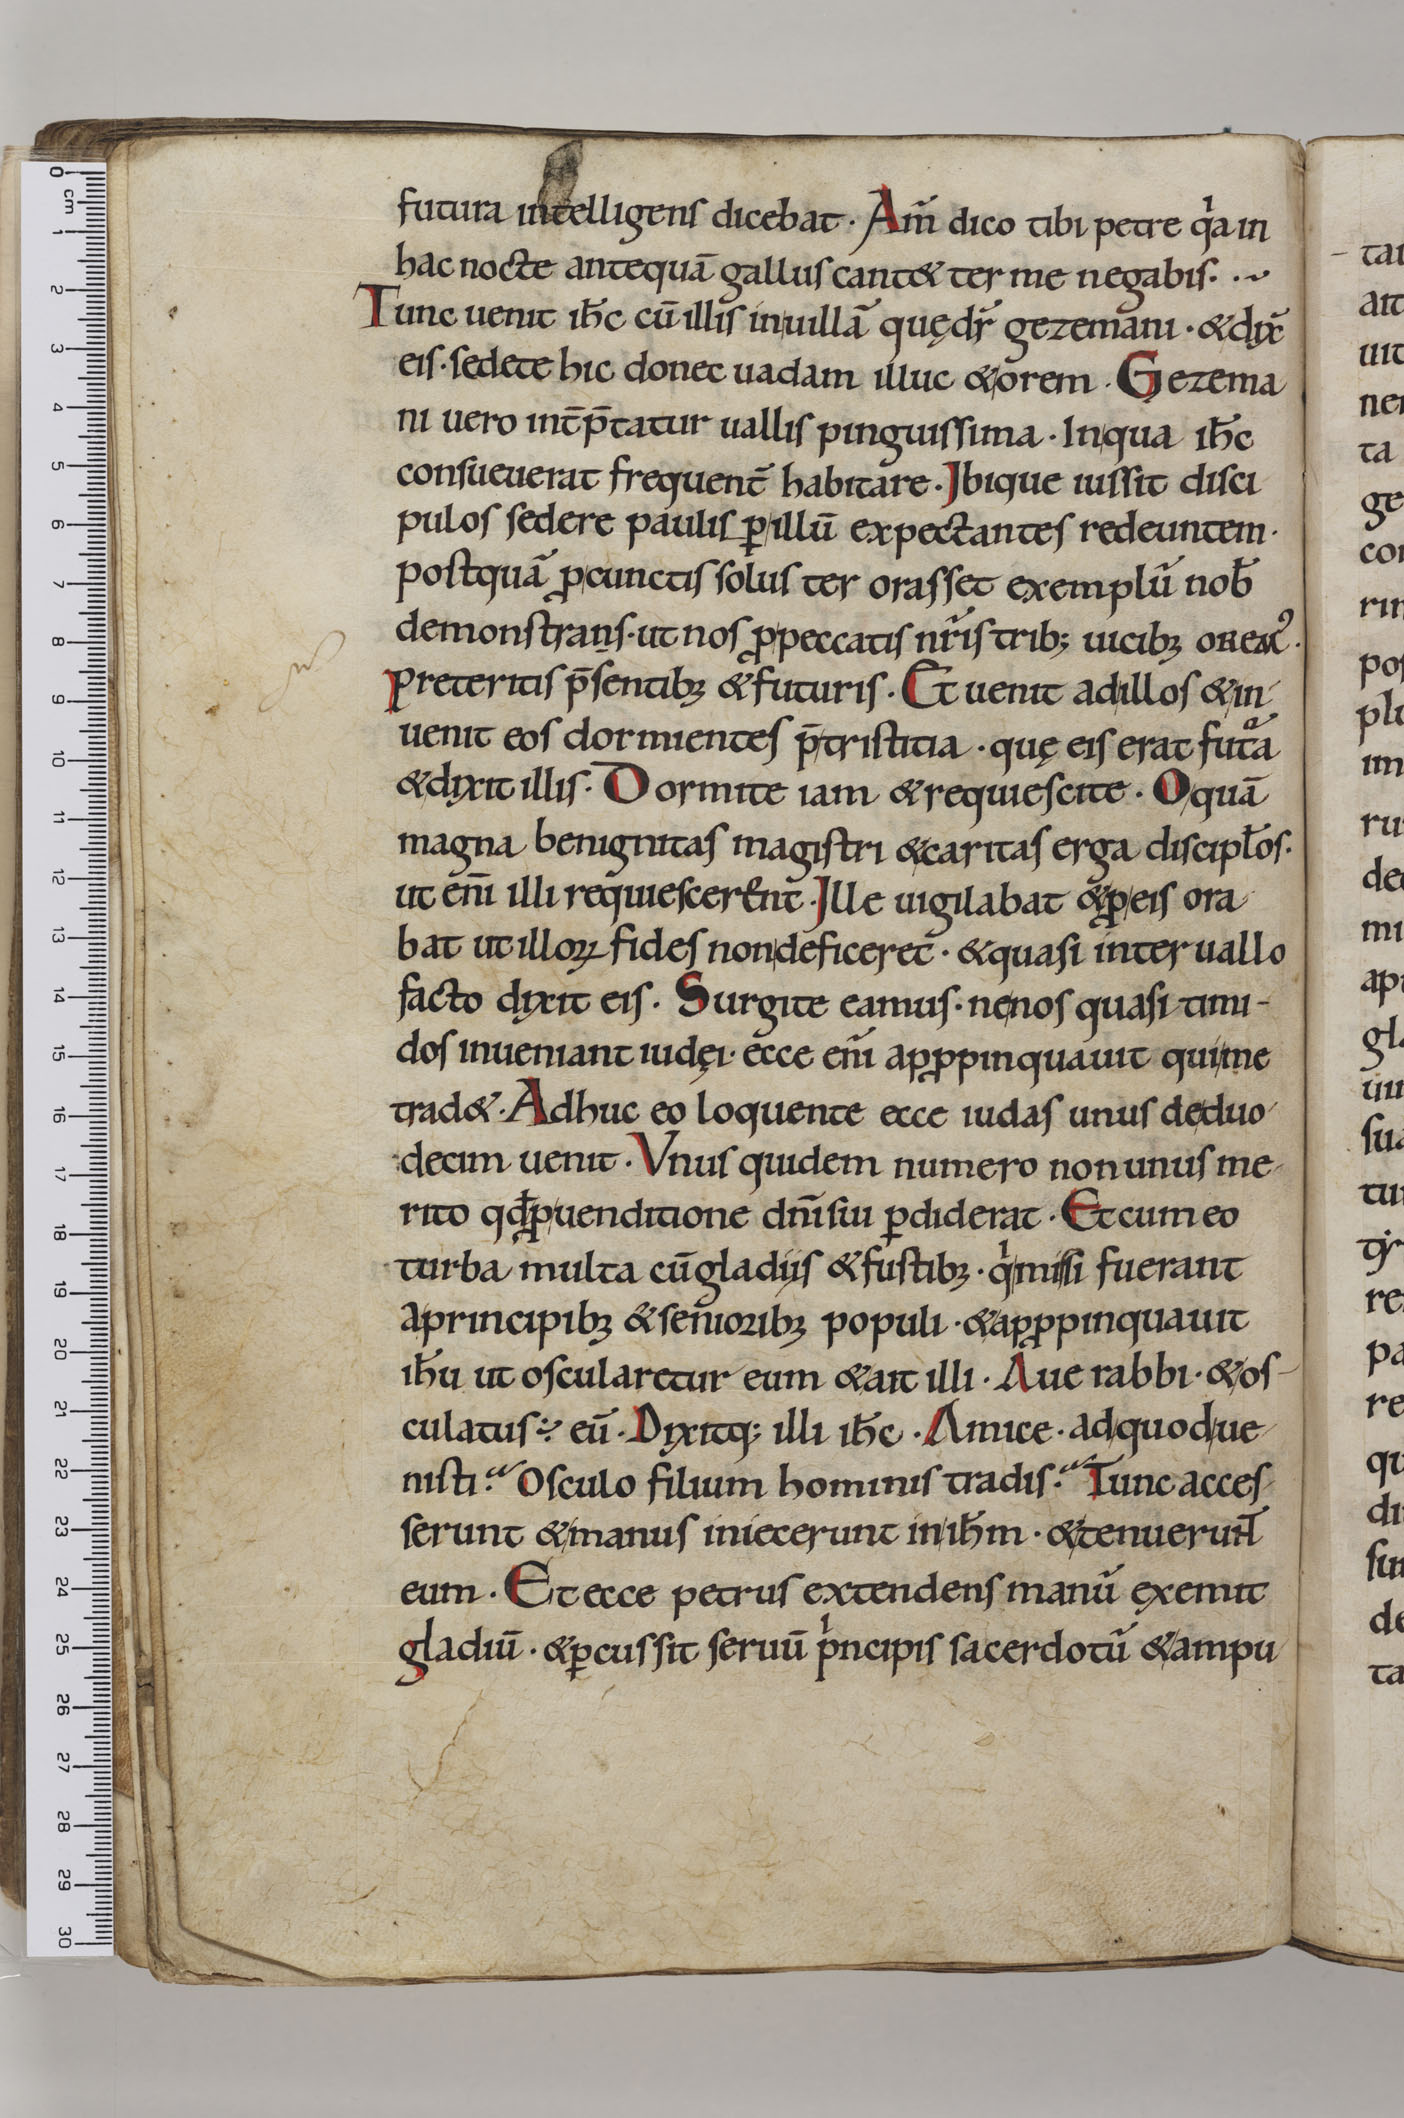 futura intelligens dicebat · Am̄ dico tibi petre qͥa in
hac nocte antequā gallus cant& ter me negabis · ~
Tunc uenit ih̄c cū illis in uillā quę dr̄ gezemani · & dix̄
eis · sedete hic donec uadam illuc & orem · Gezema
ni uero int̄p̄tatur uallis pinguissima · In qua ih̄c
consueuerat frequent̄ habitare · Ibique iussit disci
pulos sedere paulisꝑ illū expectantes redeuntem ·
postquā ꝓ cunctis solus ter orasset exemplū nob̄
demonstrans · ut nos ꝓ peccatis nr̄is trib; uicibꝫ orem᷒ ·
preteritis p̄sentibꝫ & futuris · Et uenit ad illos & in
uenit eos dormientes p̄ tristitia · quę eis erat futᷓa
& dixit illis · Dormite iam & requiescite · O quā
magna benignitas magistri & caritas erga discipłos ·
ut eni̅ illi requiescerent · Ille uigilabat & ꝓ eis ora
bat ut illoꝝ fides non deficeret · & quasi interuallo
facto dixit eis · Surgite eamus · ne nos quasi timi-
dos inueniant iudęi · ecce eni̅ apꝓpinquauit qui me
trad& · Adhuc eo loquente ecce iudas unus de duo
decim uenit · Vnus quidem numero non unus me
rito qđ ꝓ uenditione dn̄i sui ꝑdiderat · Et cum eo
turba multa cū gladiis & fustibꝫ · qͥ missi fuerant
a principibꝫ & senioribꝫ populi · & apꝓpinquauit
ih̄u ut oscularetur eum & ait illi · Aue rabbi · & os-
culatus ÷ eū · Dixitq; illi ih̄c · Amice · ad quod ue
nisti? Osculo filium hominis tradis? Tunc acces
serunt & manus iniecerunt in ih̄m · & tenuerunt
eum · Et ecce petrus extendens manū exemit
gladiū · & ꝑcussit seruū pͥncipis sacerdotū & ampu